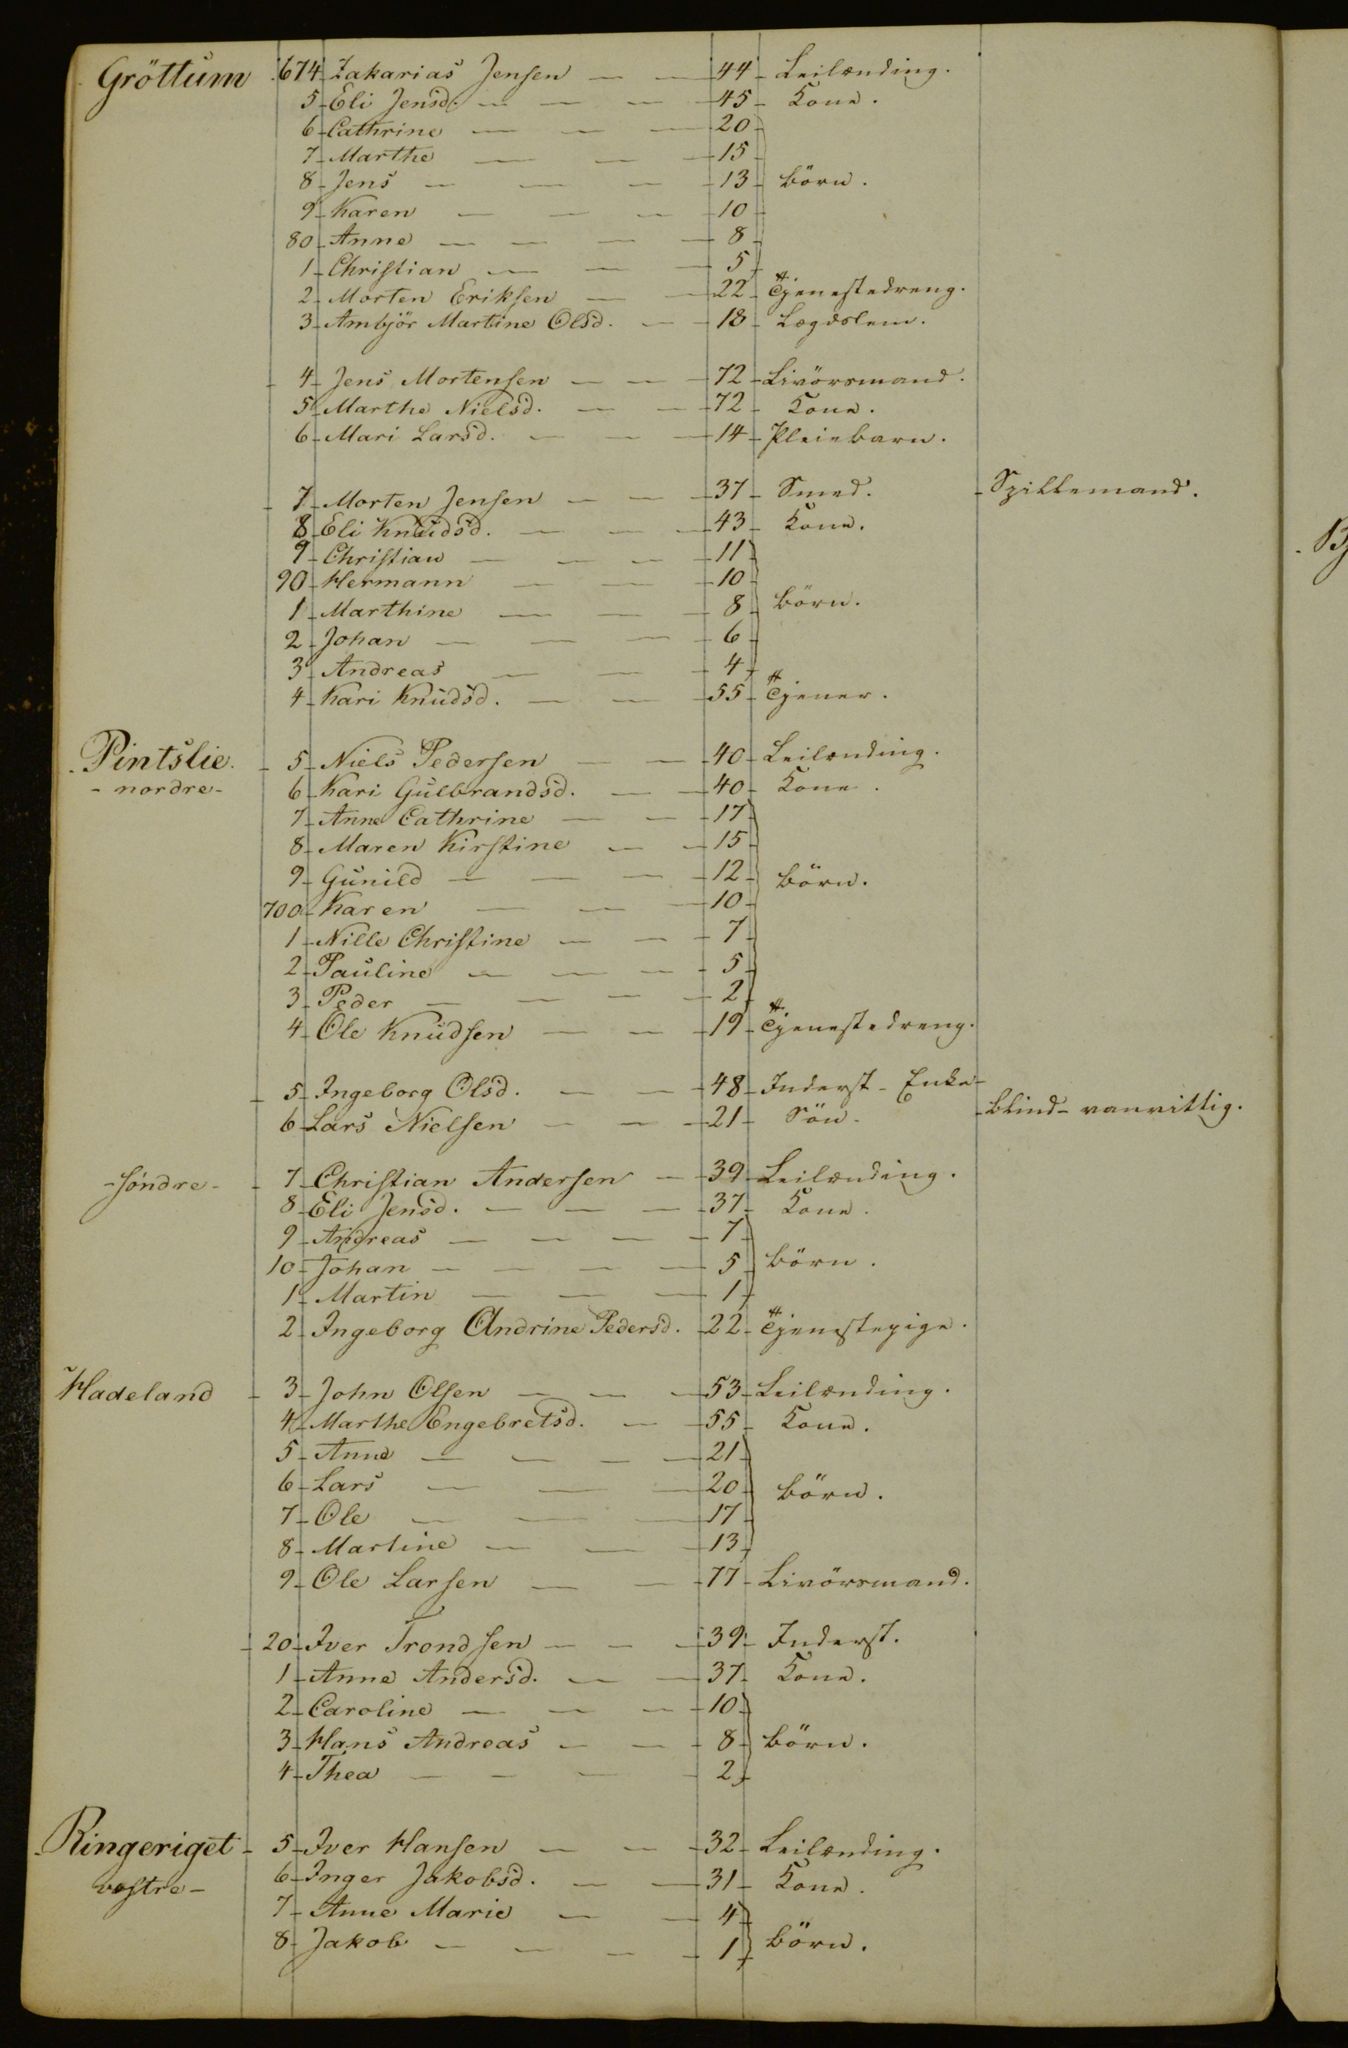 Gröttum 674 Zakarias Jensen — — 44 Leilænding.
5 Eli Jensd. — — — 45 Kone.
6 Cathrine — — — 20
7 Marthe — — — 15
8 Jens — — — 13 Börn.
9 Karen — — — 10
80 Anne — — — — 8
1 Christian — — — 5
2 Morten Eriksen — — 22 Tjenestedreng.
3 Ambjör Martine Olsd. — 18 Lægdslem.
4 Jens Mortensen — — 72 Livörsmand.
5 Marthe Nielsd. — — 72 Kone.
6 Mari Larsd. — — — 14 Pleiebarn.
7 Morten Jensen — — 37 Smed. Spillemand.
8 Eli Knudsd. — — — 43 Kone.
9 Christian — — — 11
90 Hermann — — — 10
1 Marthine — — — 8 Börn.
2 Johan — — — 6
3 Andreas — — — 4
4 Kari Knudsd. — — 55 Tjener.
Pintslie 5 Niels Pedersen — — 40 Leilænding.
- nordre - 6 Kari Gulbrandsd. — — 40 Kone.
7 Anne Cathrine — — 17
8 Maren Kirstine — — 15
9 Gunild — — — 12 Börn.
700 Karen — — — 10
1 Nille Christine — — 7
2 Pauline — — — 5
3 Peder — — — — 2
4 Ole Knudsen — — 19 Tjenestedreng.
5 Ingeborg Olsd. — — 48 Inderst - Enke -
6 Lars Nielsen — — — 21 Sön. Blind - vanvittig.
- söndre - 7 Christian Andersen — 39 Leilænding.
8 Eli Jensd. — — — 37 Kone.
9 Andreas — — — — 7
10 Johan — — — — 5 Börn.
1 Martin — — — 1
2 Ingeborg Andrine Pedersd. 22 Tjenestepige.
Hadeland 3 John Olsen — — — 53 Leilænding.
4 Marthe Engebretsd. — 55 Kone.
5 Anne — — — — 21
6 Lars — — — 20 Börn.
7 Ole — — — 17
8 Martine — — — 13
9 Ole Larsen — — 77 Livörsmand.
20 Iver Trondsen — — 39 Inderst.
1 Anne Andersd. — — 37 Kone.
2 Caroline — — — 10
3 Hans Andreas — — 8 Börn.
4 Thea — — — — 2
Ringeriget 5 Iver Hansen — — 32 Leilænding.
vestre - 6 Inger Jakobsd. — — 31 Kone.
7 Anne Marie — — 4
8 Jakob — — — 1 Börn.